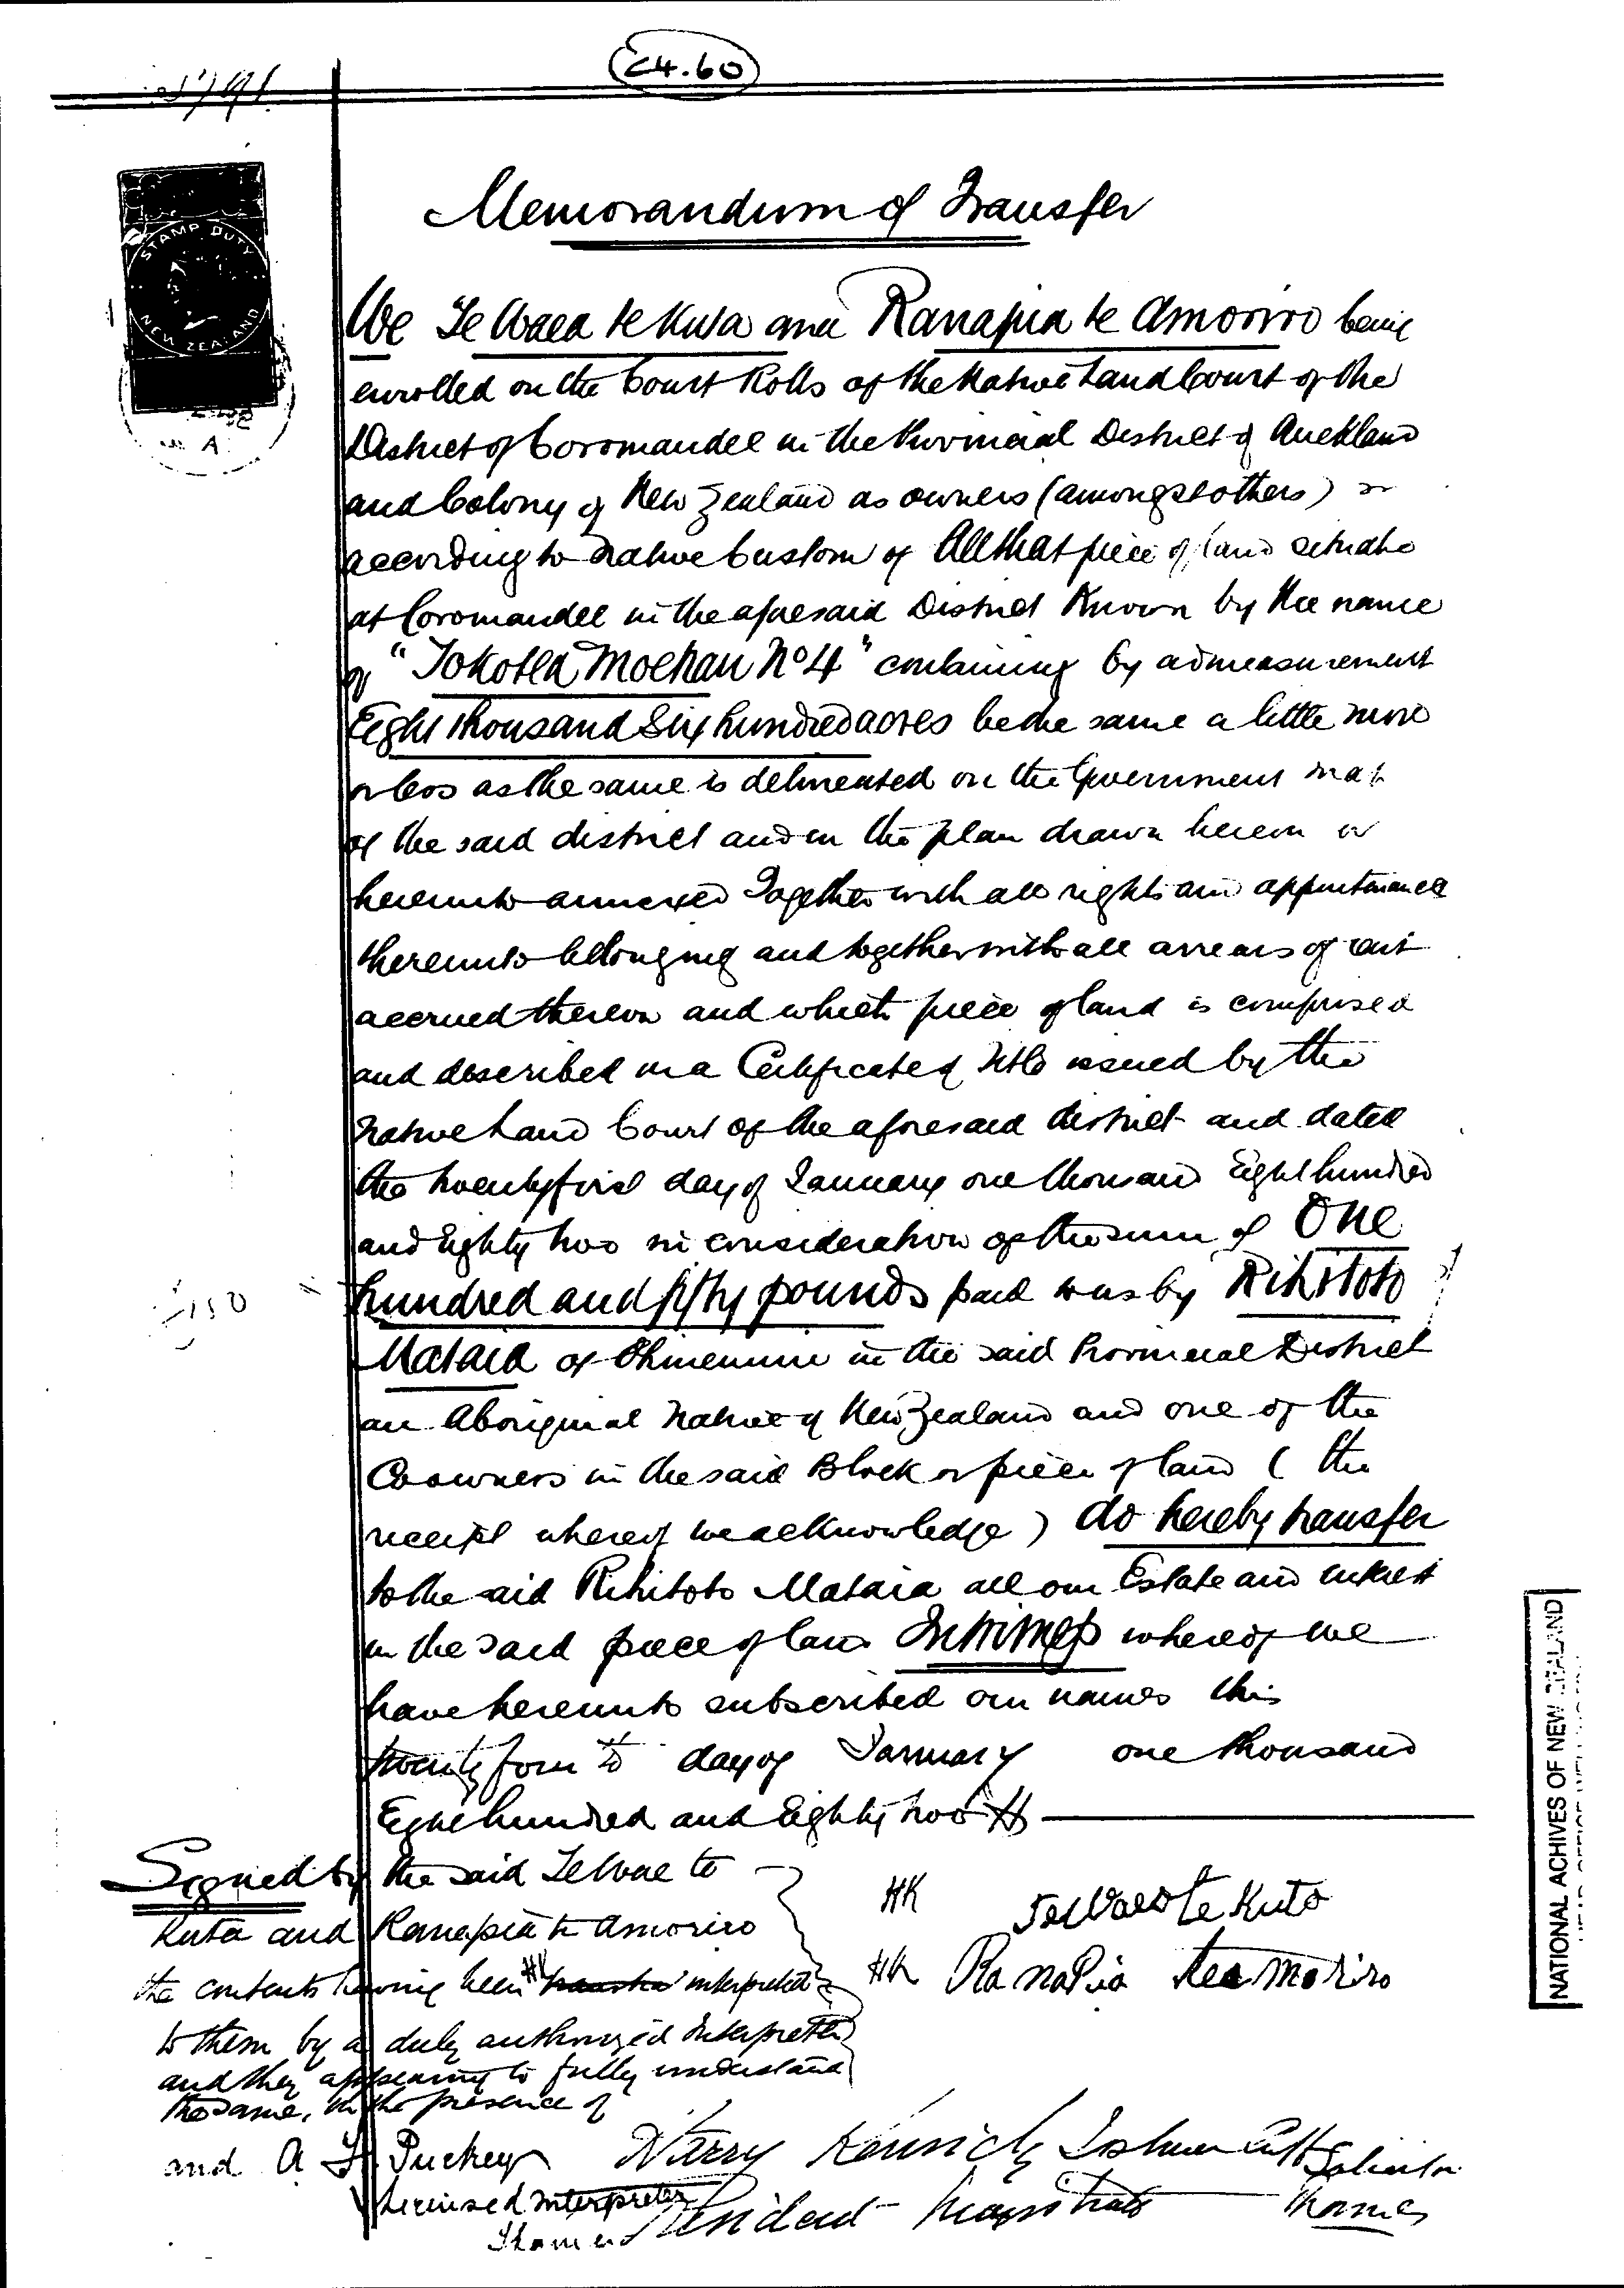 C4.60
STAMP DUTY
NEW ZEALAND
A
Memorandum of Transfer
We Te Waea te Kuta and Ranapia te Amoriro being
enrolled on the Court Rolls of the Native Land Court of the
District of Coromandel in the Provincial District of Auckland
and Colony of New Zealand as owners (amongst others) or
according to Native Custom of All that piece of land situate
at Coromandel in the aforesaid District Known by the name
of "Tokatea Moehau No 4" containing by admeasurement
Eight thousand Six hundred acres be the same a little more
or less as the same is delineated on the Government map
of the said district and on the plan drawn hereon or
hereunto annexed Together with all rights and appurtenances
thereunto belonging and together with all arrears of rent
accrued thereon and which piece of land is comprised
and described in a Certificate of Title issued by the
Native Land Court of the aforesaid district and dated
the twenty first day of January one thousand Eight hundred
and Eighty two in consideration of the sum of One
150
hundred and fifty pounds paid to us by Rihitoto
Mataia of Ohinemuri in the said Provincial District
an Aboriginal Native of New Zealand and one of the
Coowners in the said Block or piece of land (the
receipt whereof we acknowledge) do hereby transfer
to the said Rihitoto Mataia all our Estate and interest
in the said piece of land In witness whereof we
have hereunto subscribed our names this
twenty fourth day of January one thousand
Eight hundred and Eighty two
Signed by the said Te Wae te
Kuta and Ranapia te Amoriro
the contents having been HK interpreted
to them by a duly authorized Interpreter
and they appearing to fully understand
the same, in the presence of
HK Te Waeo te Kuta
HK Ranapia te amoriro
Harry Kenrick
Resident Magistrate
Solicitor
Thames
and A J Puckey
Licensed Interpreter
Thames
NATIONAL ACHIVES OF NEW ZEALAND